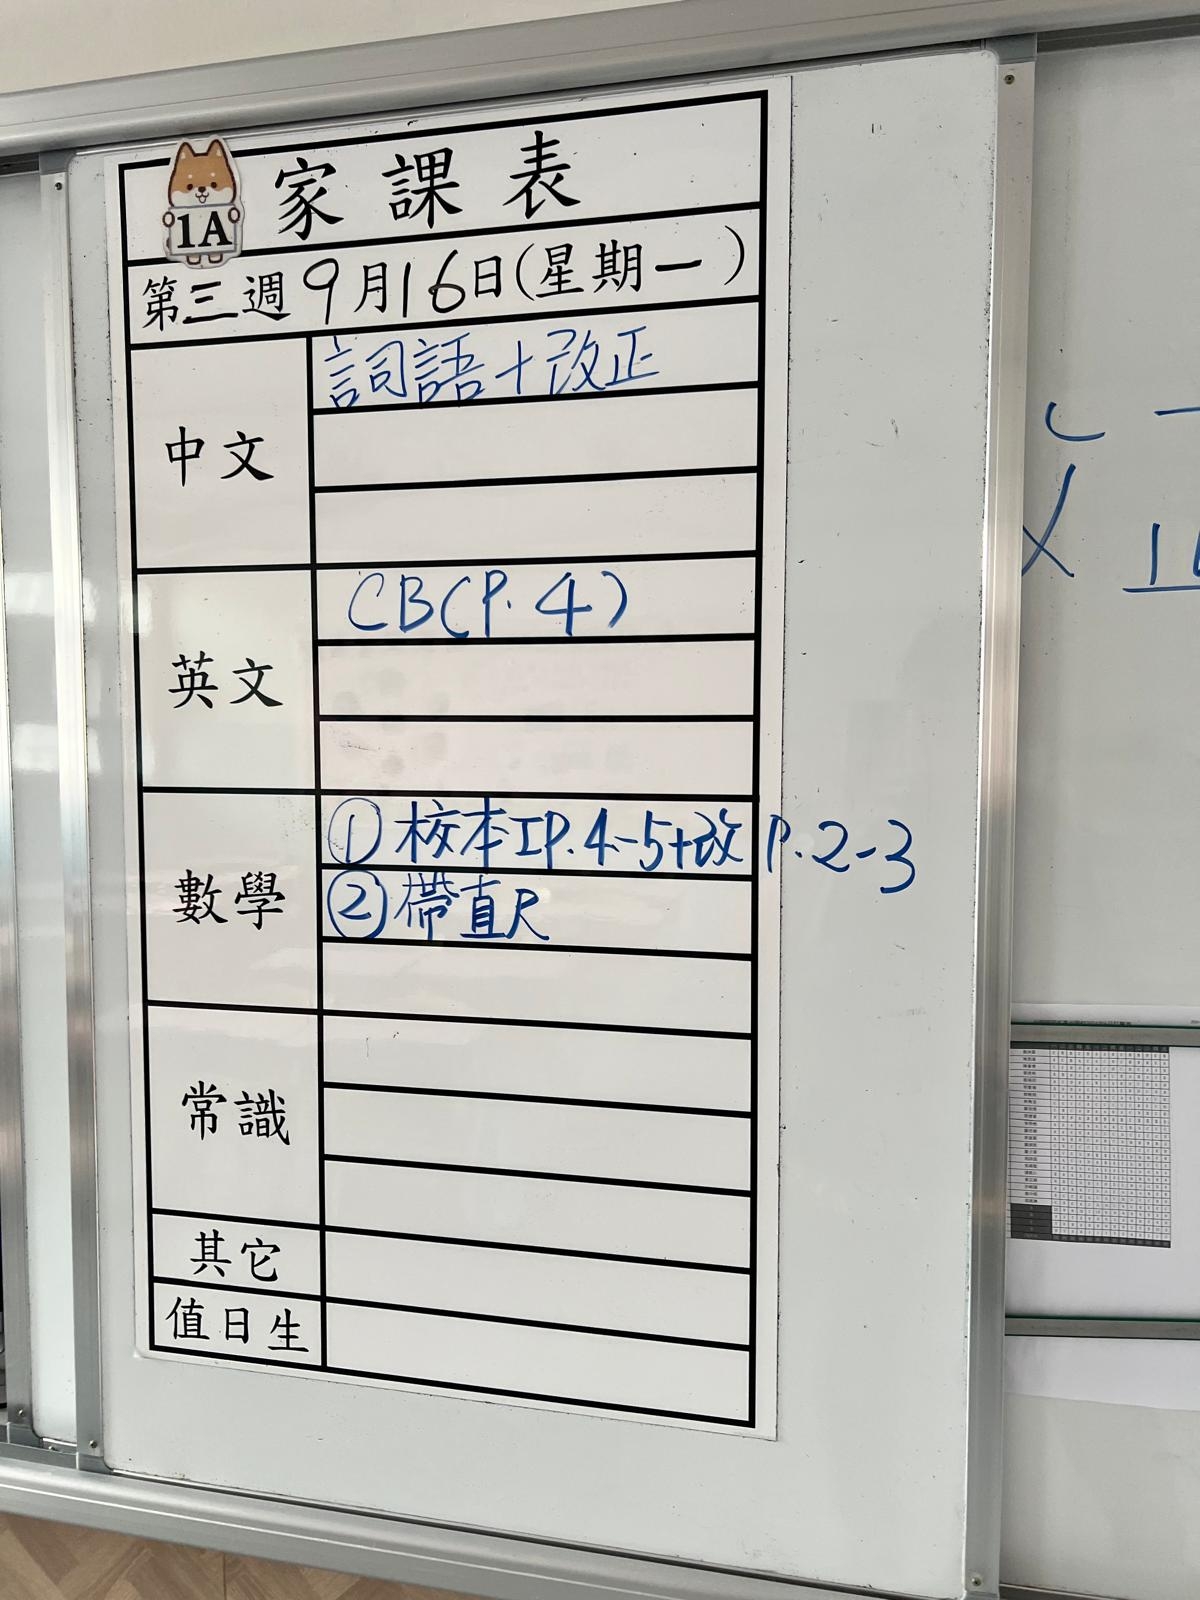 1A
家課表
第三週9月16日(星期一)
中文
詞語+改正
英文
CB(P.4)
數學
①校本工P.4-5+改P.2-3
②帶直尺
常識
其它
值日生